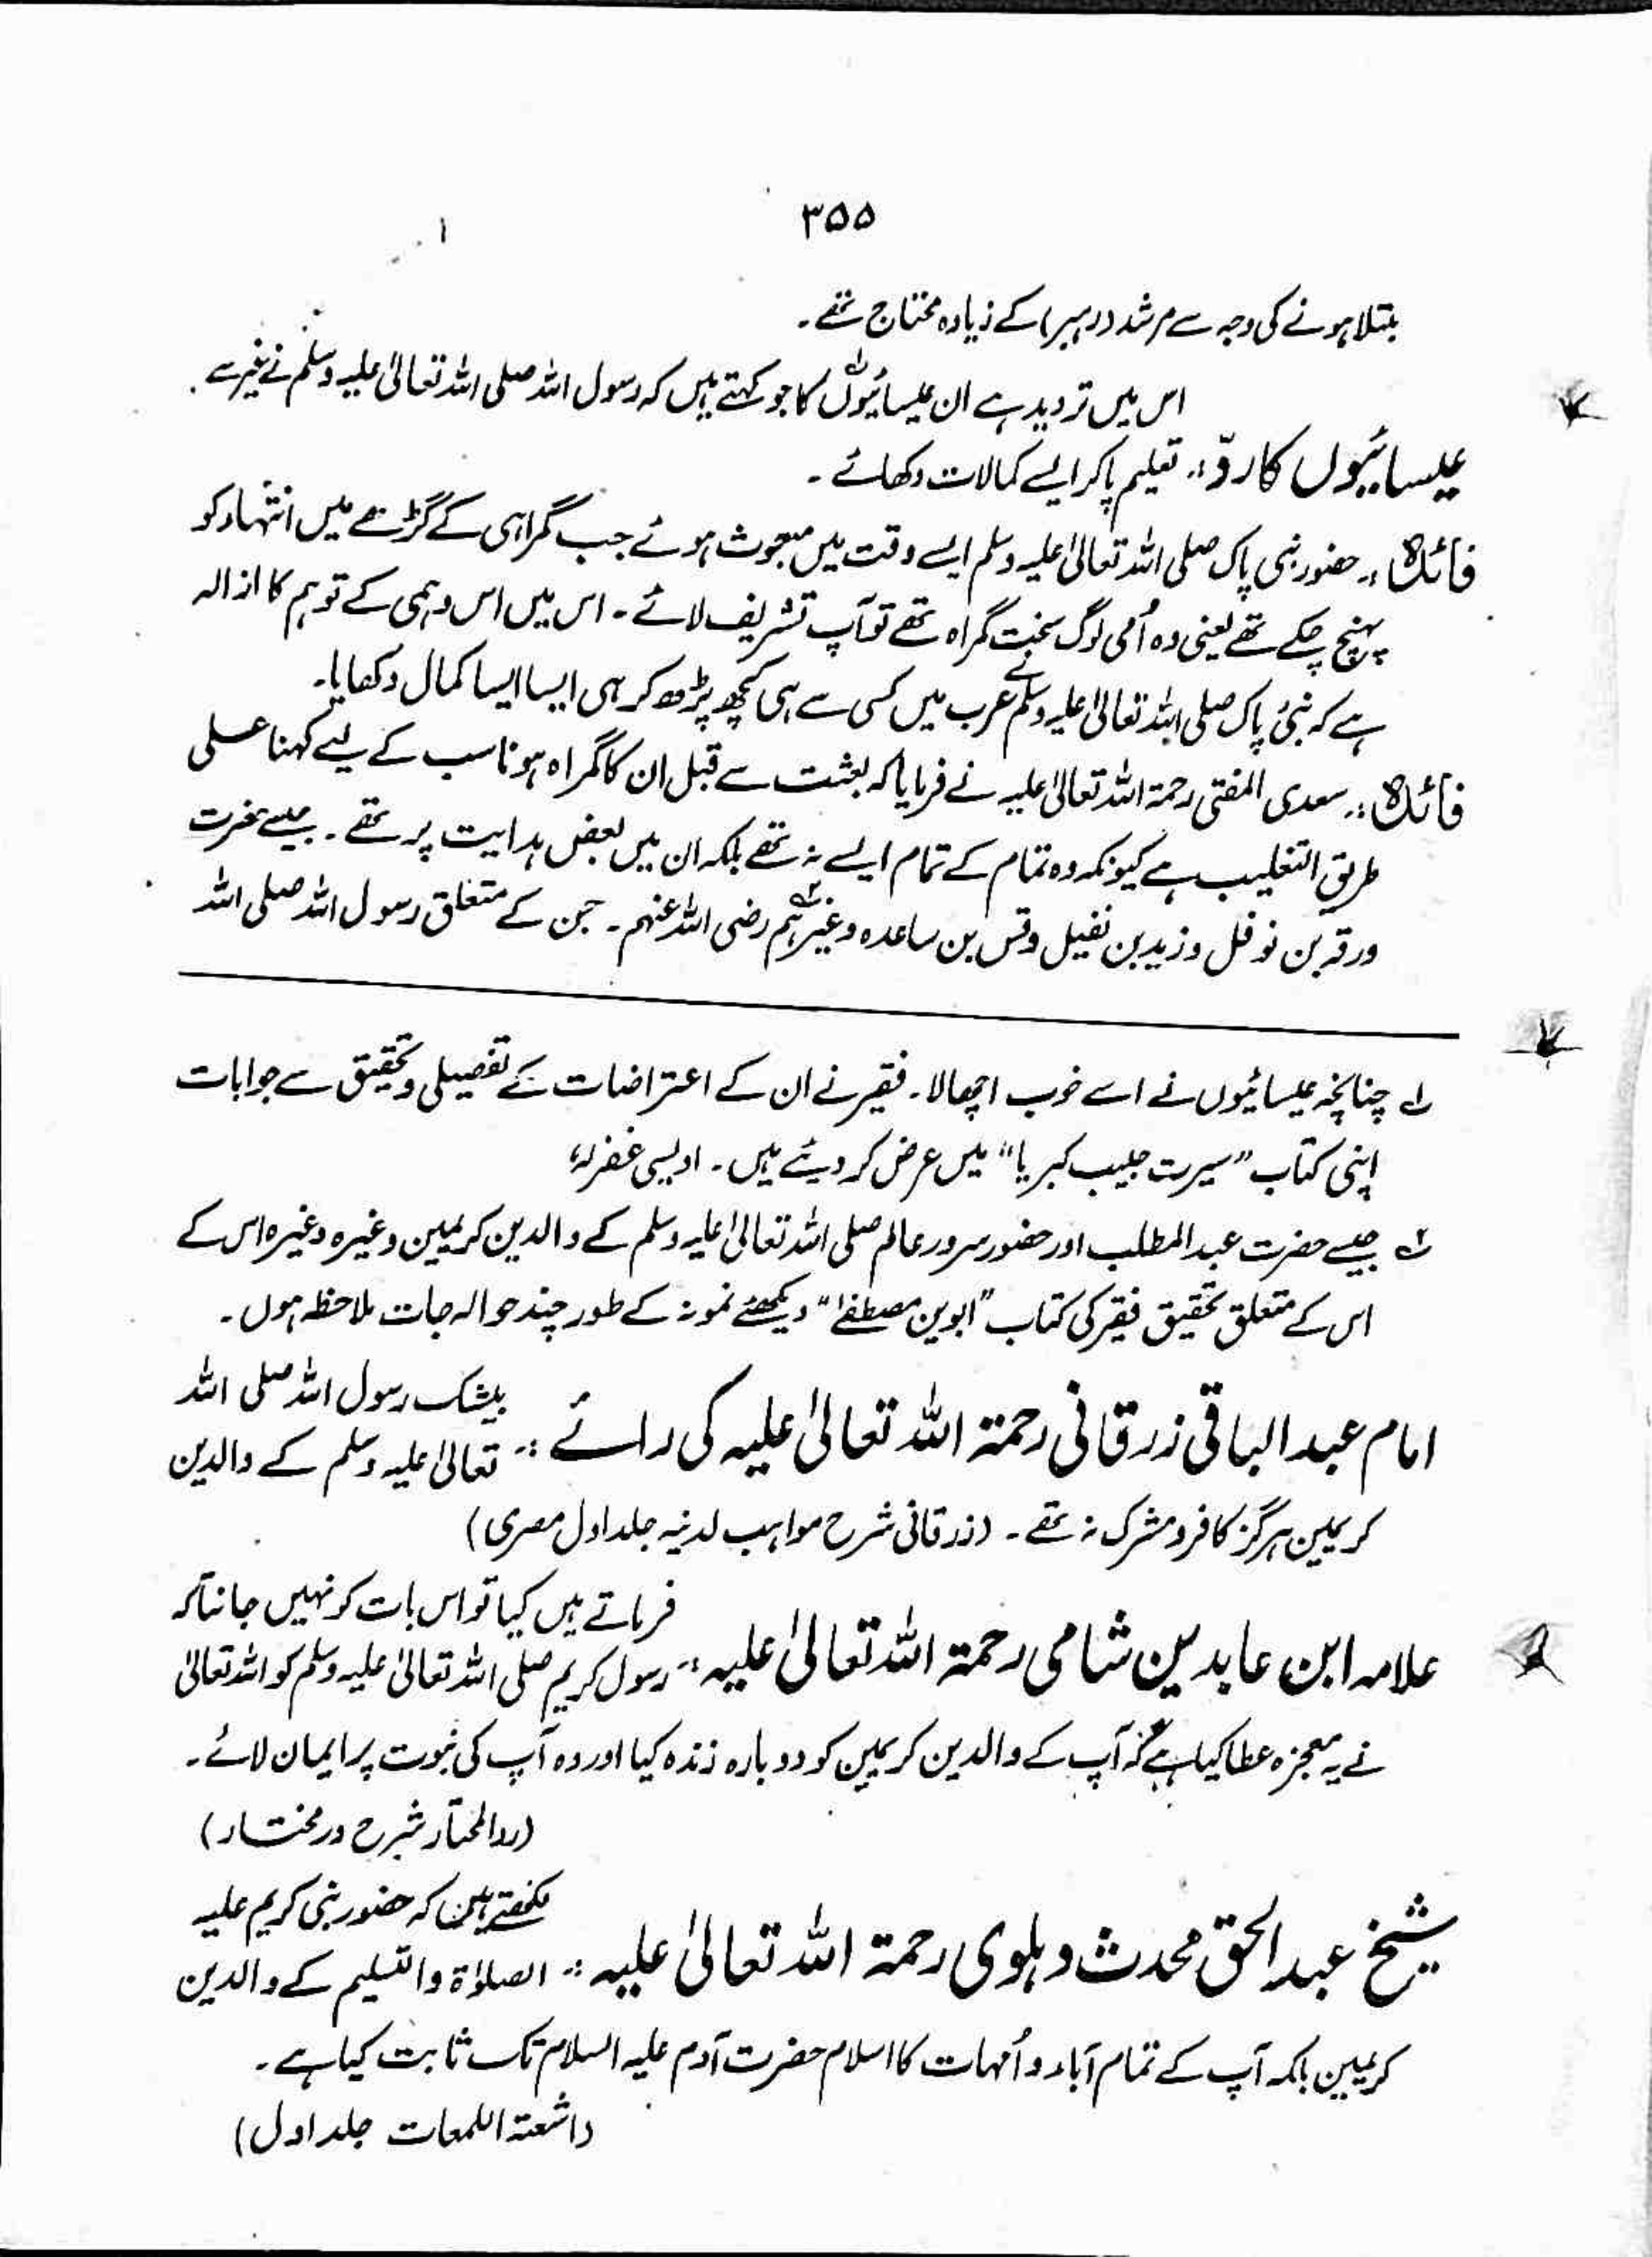 ۳۵۵
مبتلا ہونے کی وجہ سے مرشد (رہبر) کے زیادہ محتاج تھے۔
اس میں تردید ہے ان عیسائیوں ۱؎ کا جو کہتے ہیں کہ رسول اللہ صلی اللہ تعالیٰ علیہ وسلم نے غیر سے
عیسائیوں کا ردّ :۔ تعلیم پا کر ایسے کمالات دکھائے۔
فائدہ :۔ حضور نبی پاک صلی اللہ تعالیٰ علیہ وسلم ایسے وقت میں مبعوث ہوئے جب گمراہی کے گڑھے میں انتہاء کو
پہنچ چکے تھے یعنی وہ اُمی لوگ سخت گمراہ تھے تو آپ تشریف لائے۔ اس میں اس وہمی کے توہم کا ازالہ
ہے کہ نبی پاک صلی اللہ تعالیٰ علیہ وسلم نے عرب میں کسی سے ہی کچھ پڑھ کر ہی ایسا ایسا کمال دکھایا۔
فائدہ :۔ سعدی المفتی رحمۃ اللہ تعالیٰ علیہ نے فرمایا کہ بعثت سے قبل ان کا گمراہ ہونا سب کے لیے کہنا علی
طریق التغلیب ہے کیونکہ وہ تمام کے تمام ایسے نہ تھے بلکہ ان میں بعض ہدایت پر تھے۔ جیسے حضرت
ورقہ بن نوفل و زید بن نفیل وقس بن ساعدہ وغیرہم ۲؎ رضی اللہ عنہم۔ جن کے متعلق رسول اللہ صلی اللہ
۱؎ چنانچہ عیسائیوں نے اسے خوب اچھالا۔ فقیر نے ان کے اعتراضات کے تفصیلی و تحقیق سے جوابات
اپنی کتاب "سیرت حبیب کبریا" میں عرض کر دیئے ہیں۔ اویسی غفرلہٗ
۲؎ جیسے حضرت عبد المطلب اور حضور سرور عالم صلی اللہ تعالیٰ علیہ وسلم کے والدین کریمین وغیرہ وغیرہ اس کے
اس کے متعلق تحقیق فقیر کی کتاب "ابوین مصطفےٰ" دیکھئے نمونہ کے طور چند حوالہ جات ملاحظہ ہوں۔
امام عبد الباقی زرقانی رحمۃ اللہ تعالیٰ علیہ کی رائے :۔ بیشک رسول اللہ صلی اللہ
تعالیٰ علیہ وسلم کے والدین
کریمین ہرگز کافر و مشرک نہ تھے۔ (زرقانی شرح مواہب لدنیہ جلد اول مصری)
علامہ ابن عابدین شامی رحمۃ اللہ تعالیٰ علیہ :۔ فرماتے ہیں کیا تو اس بات کو نہیں جانتا کہ
رسول کریم صلی اللہ تعالیٰ علیہ وسلم کو اللہ تعالیٰ
نے یہ معجزہ عطا کیا ہے کہ آپ کے والدین کریمین کو دوبارہ زندہ کیا اور وہ آپ کی نبوت پر ایمان لائے۔
(ردالمحتار شرح درمختار)
شیخ عبد الحق محدث دہلوی رحمۃ اللہ تعالیٰ علیہ :۔ لکھتے ہیں کہ حضور نبی کریم علیہ
الصلوٰۃ والتسلیم کے والدین
کریمین بلکہ آپ کے تمام آباء و اُمہات کا اسلام حضرت آدم علیہ السلام تک ثابت کیا ہے۔
(اشعۃ اللمعات جلد اول)